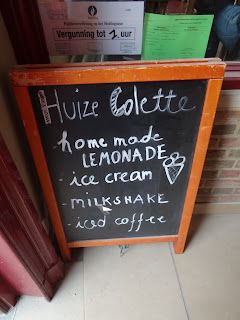 Vergunning tot 2 uur
Huize Colette
- home made
LEMONADE
- ice cream
- MILKSHAKE
- iced coffee